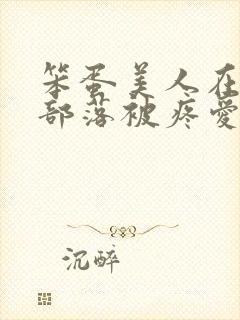 笨蛋美人在
部落被疼愛
沉醉